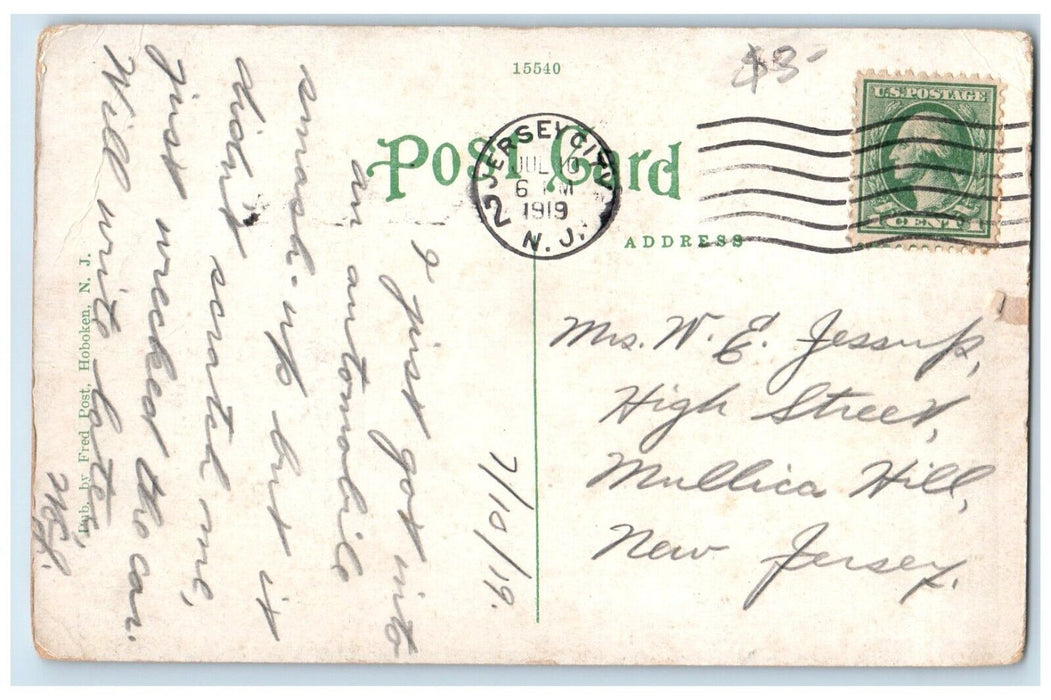 15540
$3-
Post Card
JERSEY CITY
2
JUL 10
6 PM
1919
N. J.
U.S. POSTAGE
1 CENT 1
ADDRESS
7/10/19.
I just got into
an automobile
smash-up but it
didn't scratch me,
just wrecked the car.
Will write later
Mrs. W. E. Jessup,
High Street,
Mullica Hill,
New Jersey.
Pub. by Fred Post, Hoboken, N. J.